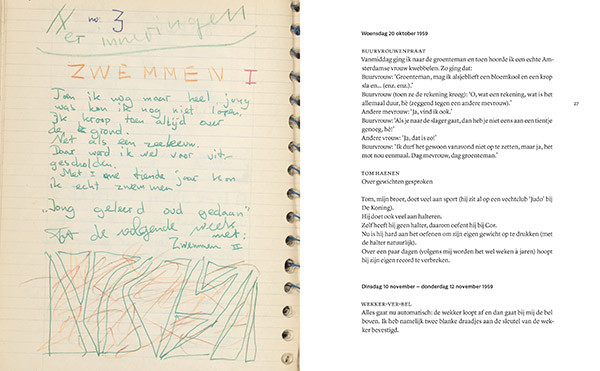 no. 3
ZWEMMEN I
Toen ik nog maar heel jong
was kon ik nog niet lopen.
Ik kroop toen altijd over
de grond.
Net als een zeeleeuw.
Daar werd ik wel voor uit-
gescholden.
Met tiende jaar kon
ik echt zwemmen
„Jong geleerd oud gedaan"
Tot de volgende week met:
Zwemmen II
Woensdag 20 oktober 1959
BUURVROUWENPRAAT
Vanmiddag ging ik naar de groenteman en toen hoorde ik een echte Am-
sterdamse vrouw kwebbelen. Zo ging dat:
Buurvrouw: 'Groenteman, mag ik alsjeblieft een bloemkool en een krop
sla en... (enz. enz.).'
Buurvrouw (toen ze de rekening kreeg): 'O, wat een rekening, wat is het
allemaal duur, hè (zeggend tegen een andere mevrouw).'
Andere mevrouw: 'Ja, vind ik ook.'
Buurvrouw: 'Als je naar de slager gaat, dan heb je niet eens aan een tientje
genoeg, hè!'
Andere vrouw: 'Ja, dat is zo!'
Buurvrouw: 'Ik durf het gewoon vanavond niet op te zetten, maar ja, het
mot nou eenmaal. Dag mevrouw, dag groenteman.'
27
TOM HAENEN
Over gewichten gesproken
Tom, mijn broer, doet veel aan sport (hij zit al op een vechtclub 'Judo' bij
De Koning).
Hij doet ook veel aan halteren.
Zelf heeft hij geen halter, daarom oefent hij bij Cor.
Nu is hij hard aan het oefenen om zijn eigen gewicht op te drukken (met
de halter natuurlijk).
Over een paar dagen (volgens mij worden het wel weken à jaren) hoopt
hij zijn eigen record te verbreken.
Dinsdag 10 november – donderdag 12 november 1959
WEKKER-VER-BEL
Alles gaat nu automatisch: de wekker loopt af en dan gaat bij mij de bel
boven. Ik heb namelijk twee blanke draadjes aan de sleutel van de wek-
ker bevestigd.